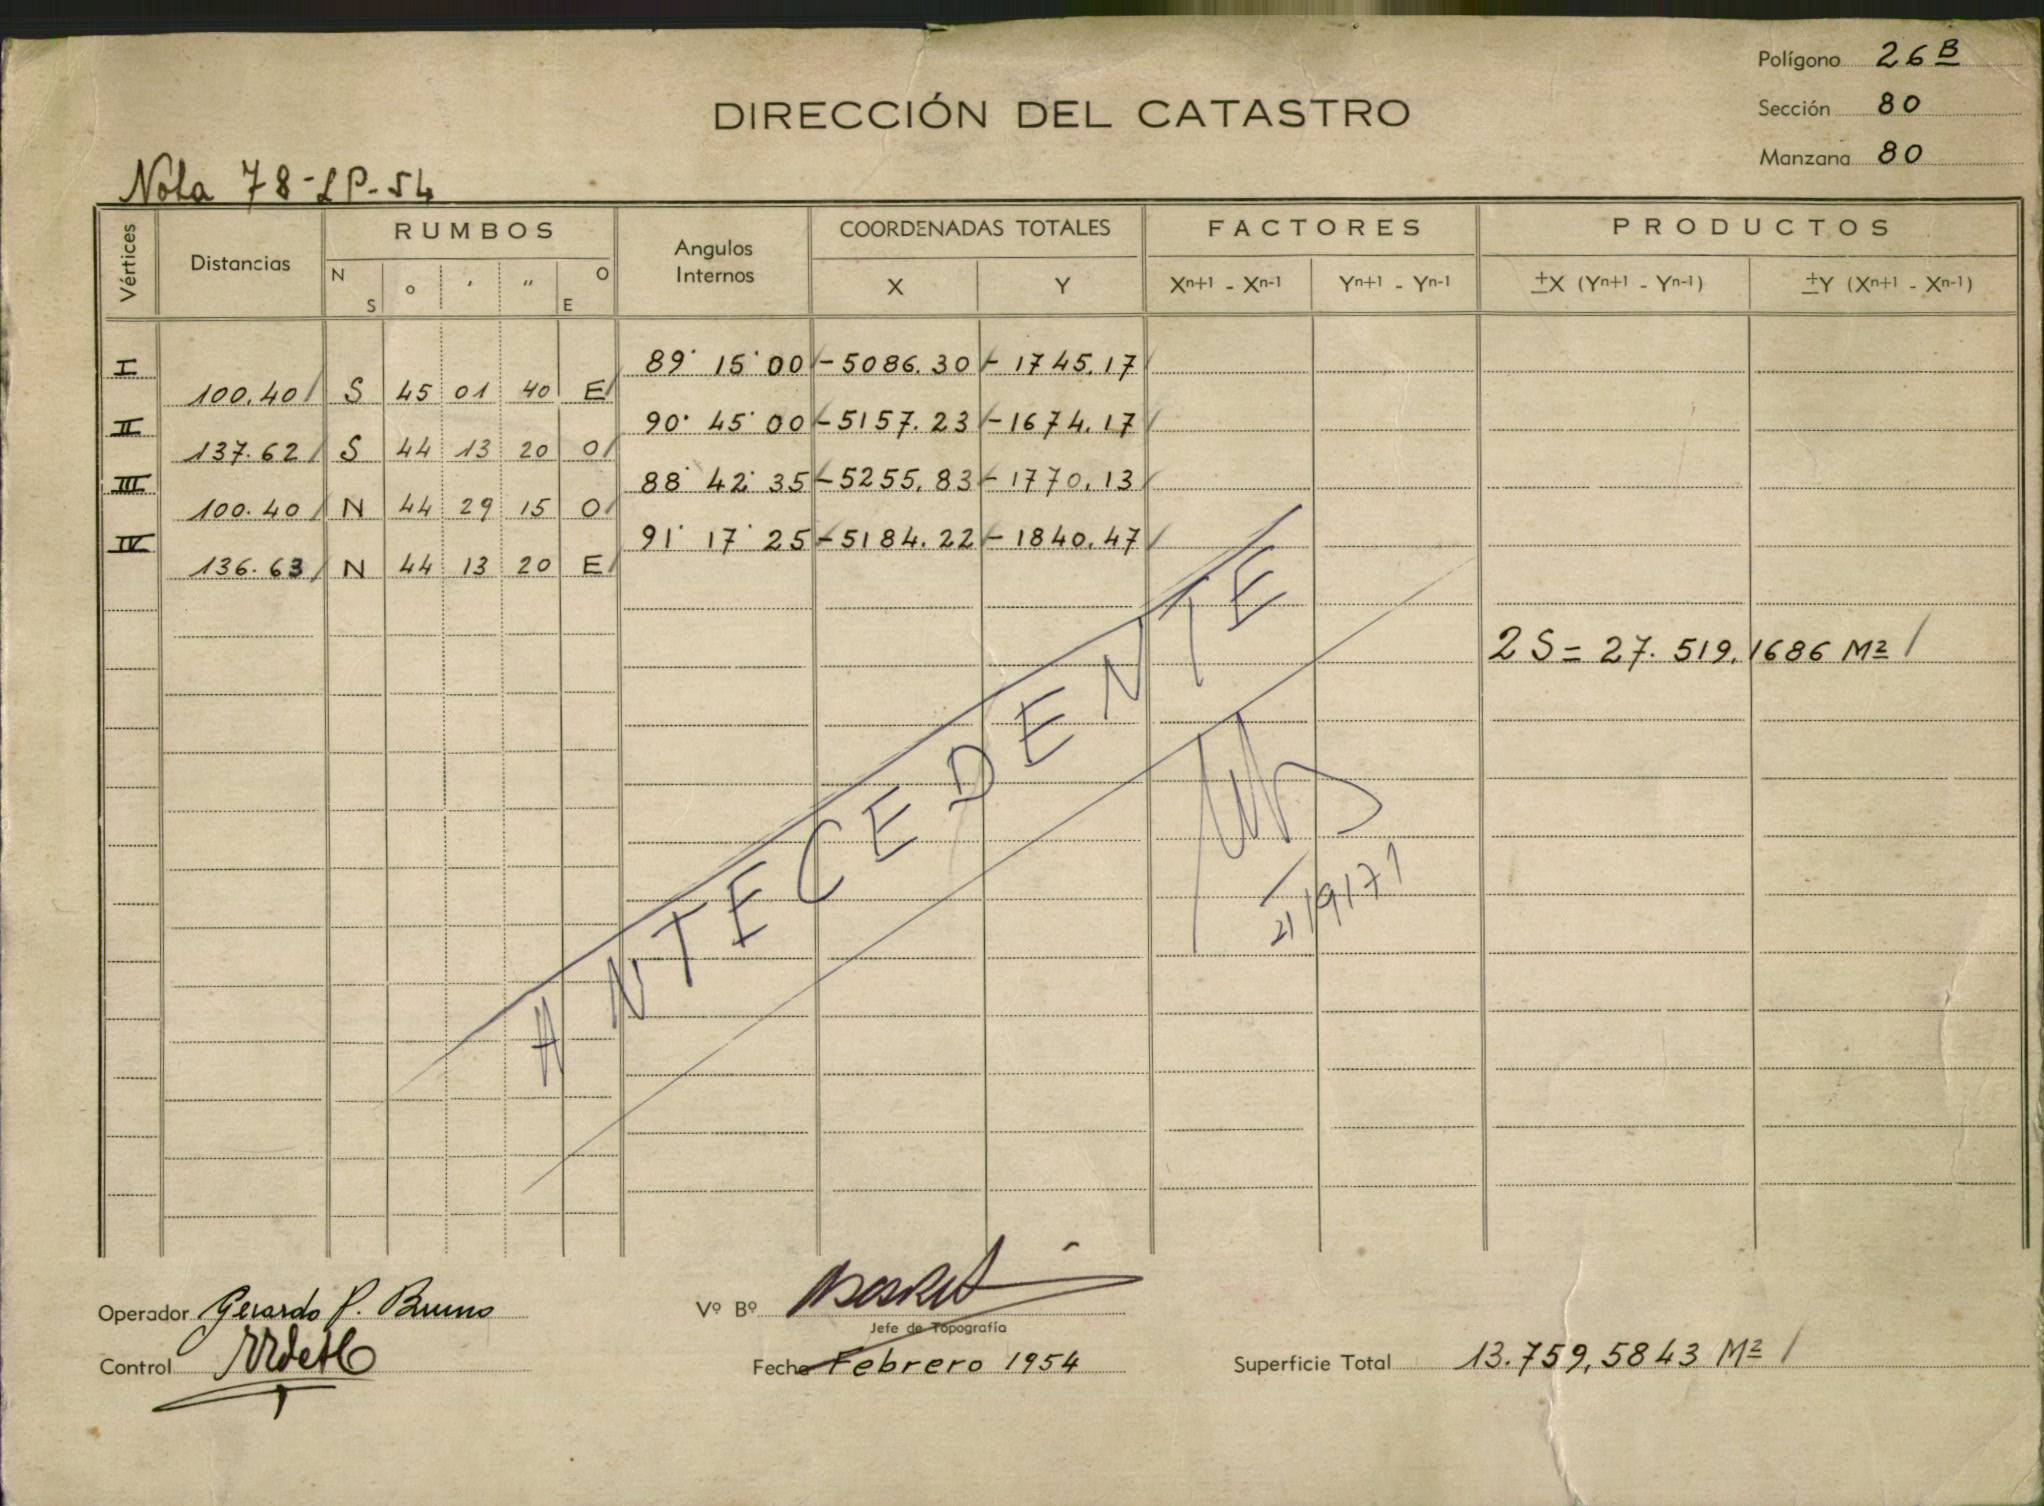 Polígono 26 B
DIRECCIÓN DEL CATASTRO
Sección 80
Manzana 80
Nota 78-LP-54
Vértices Distancias RUMBOS Angulos Internos COORDENADAS TOTALES FACTORES PRODUCTOS
N S ° ' " O E X Y Xn+1 - Xn-1 Yn+1 - Yn-1 ±X (Yn+1 - Yn-1) ±Y (Xn+1 - Xn-1)
I 89° 15' 00 -5086.30 -1745.17
100.40 S 45 01 40 E
II 90° 45' 00 -5157.23 -1674.17
137.62 S 44 13 20 O
III 88° 42' 35 -5255.83 -1770.13
100.40 N 44 29 15 O
IV 91° 17' 25 -5184.22 -1840.47
136.63 N 44 13 20 E
2 S = 27.519,1686 M2
ANTECEDENTE
21/9/71
Operador Gerardo P. Bruno
Vº Bº
Jefe de Topografía
Control
Fecha Febrero 1954
Superficie Total 13.759,5843 M2